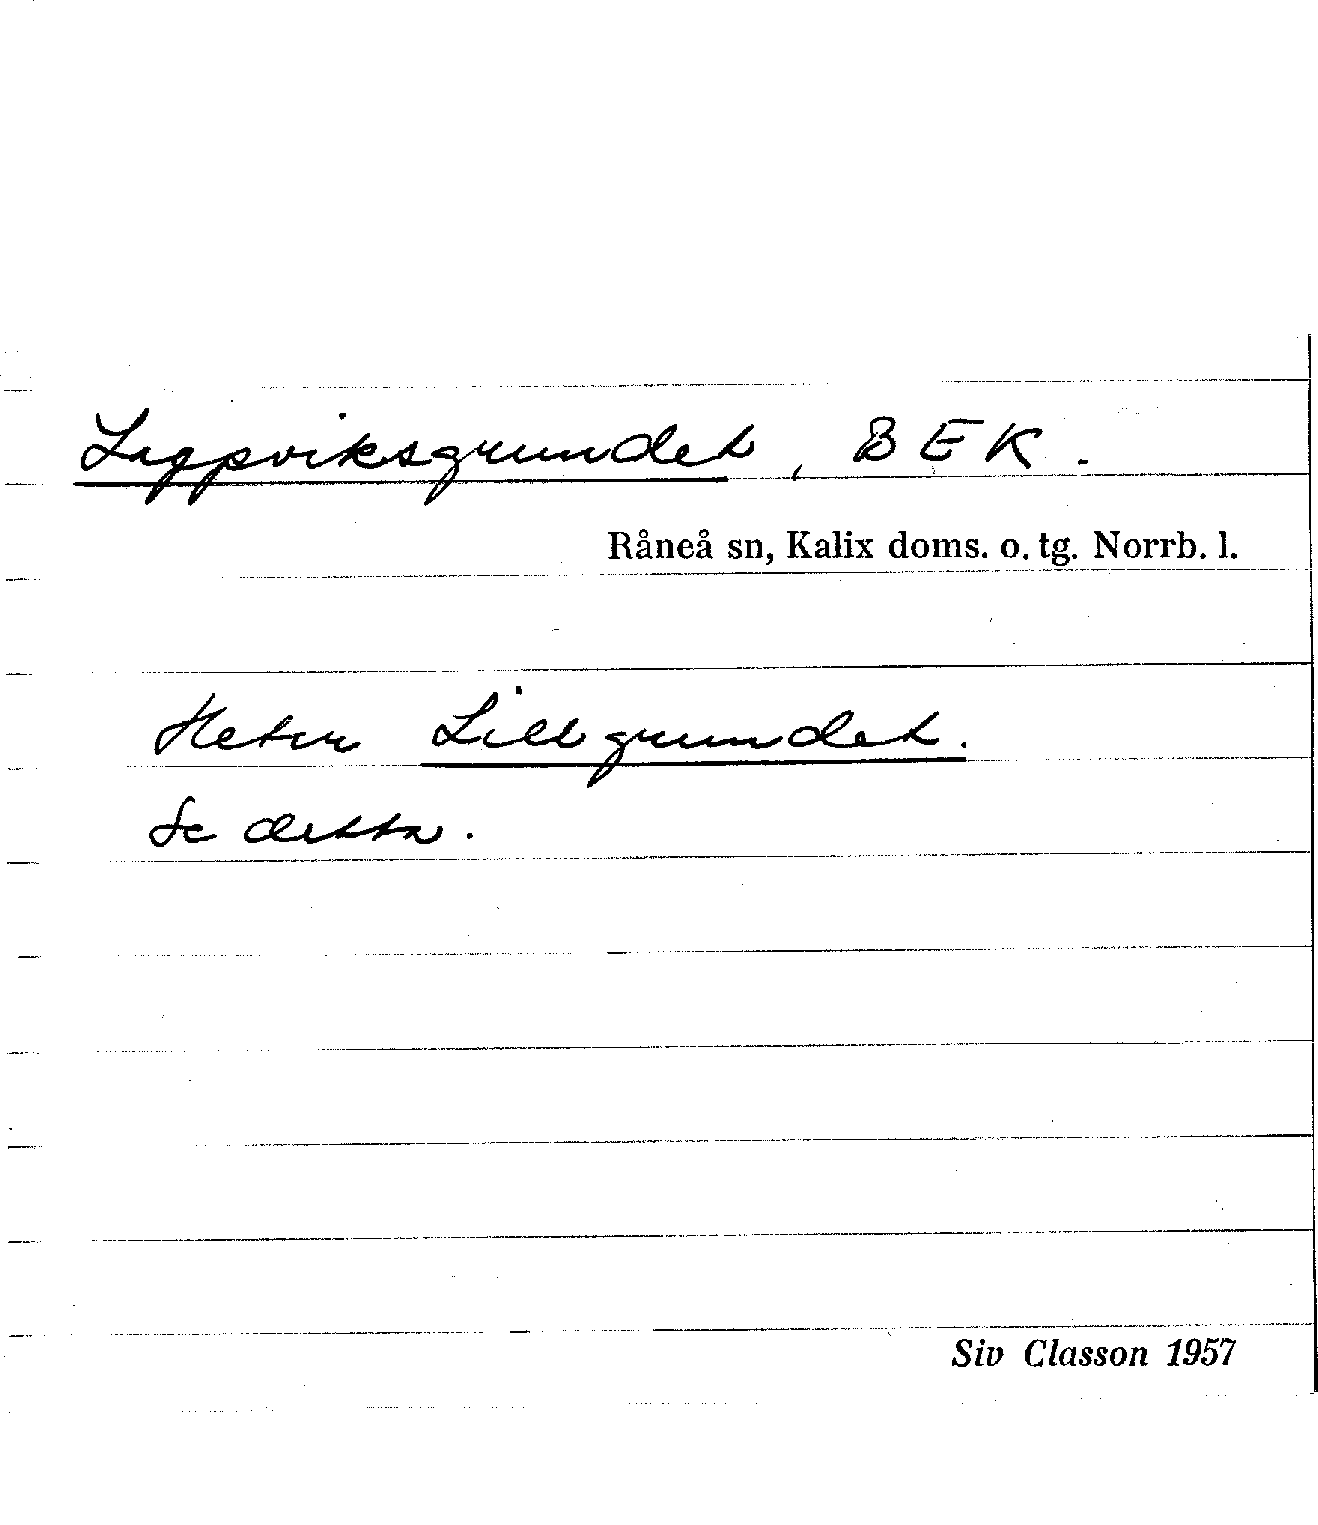 Lappviksgrundet, BEK.
Råneå sn, Kalix doms. o. tg. Norrb. l.
Heter Lillgrundet.
Se detta.
Siv Classon 1957